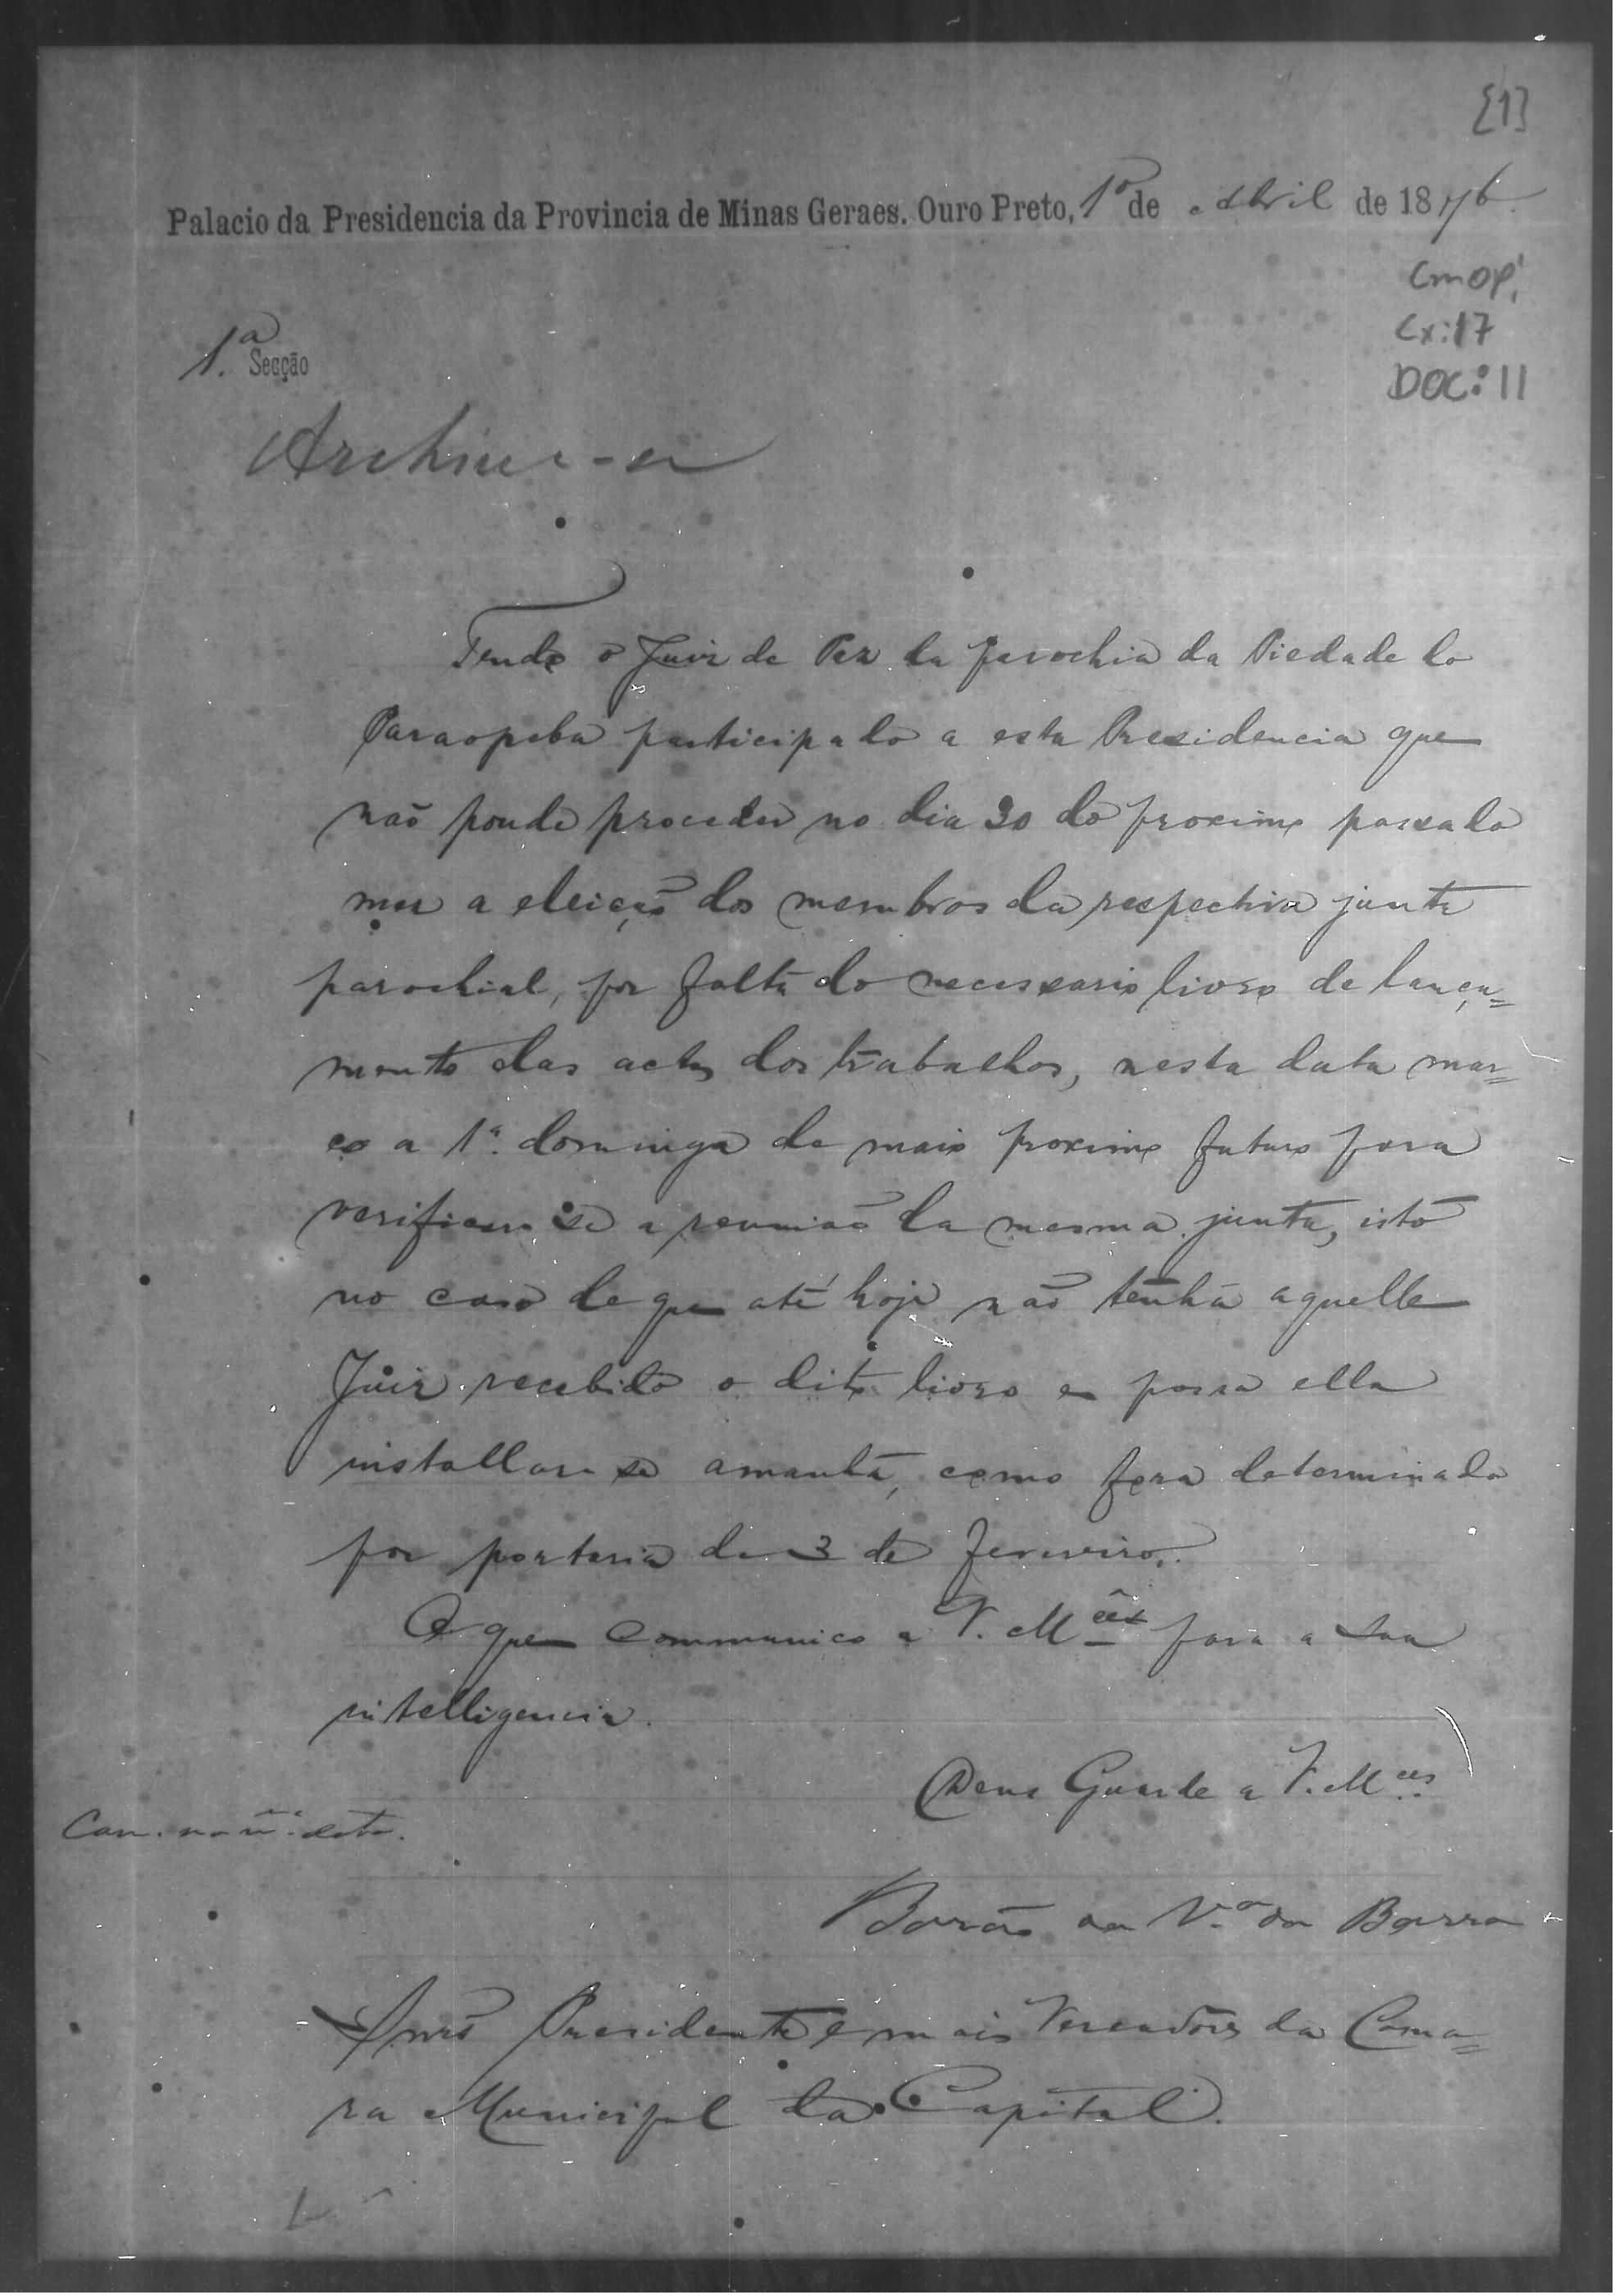 [1]
Palacio da Presidencia da Provincia de Minas Geraes. Ouro Preto, 1º de Abril de 1876.
CMOP,
Cx: 17
DOC: 11
1.ª Secção
Archive-se
Tendo o Juiz de Paz da parochia da Piedade do
Paraopeba participado a esta Presidencia que
não poude proceder no dia 30 do proximo passado
mez a eleição dos membros da respectiva junta
parochial, por falta do necessario livro de lança=
mento das actas dos trabalhos, nesta data mar=
co a 1ª. dominga de maio proximo futuro para
verificar se a reunião da mesma junta, isto
no caso de que até hoje não tenha aquelle
Juiz recebido o dito livro e possa ella
installar se amanhã, como fora determinado
por portaria de 3 de Fevereiro.
O que communico a V. M.ces para a sua
intelligencia.
Deus Guarde a V. M.ces
Barão da V.a da Barra
Snrs. Presidente e mais Vereadores da Cama=
ra Municipal da Capital.